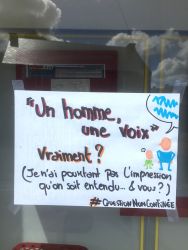 "Un homme,
une voix"
Vraiment ?
(Je n'ai pourtant pas l'impression
qu'on soit entendu... & vous ?)
#QuestionNonConfinée